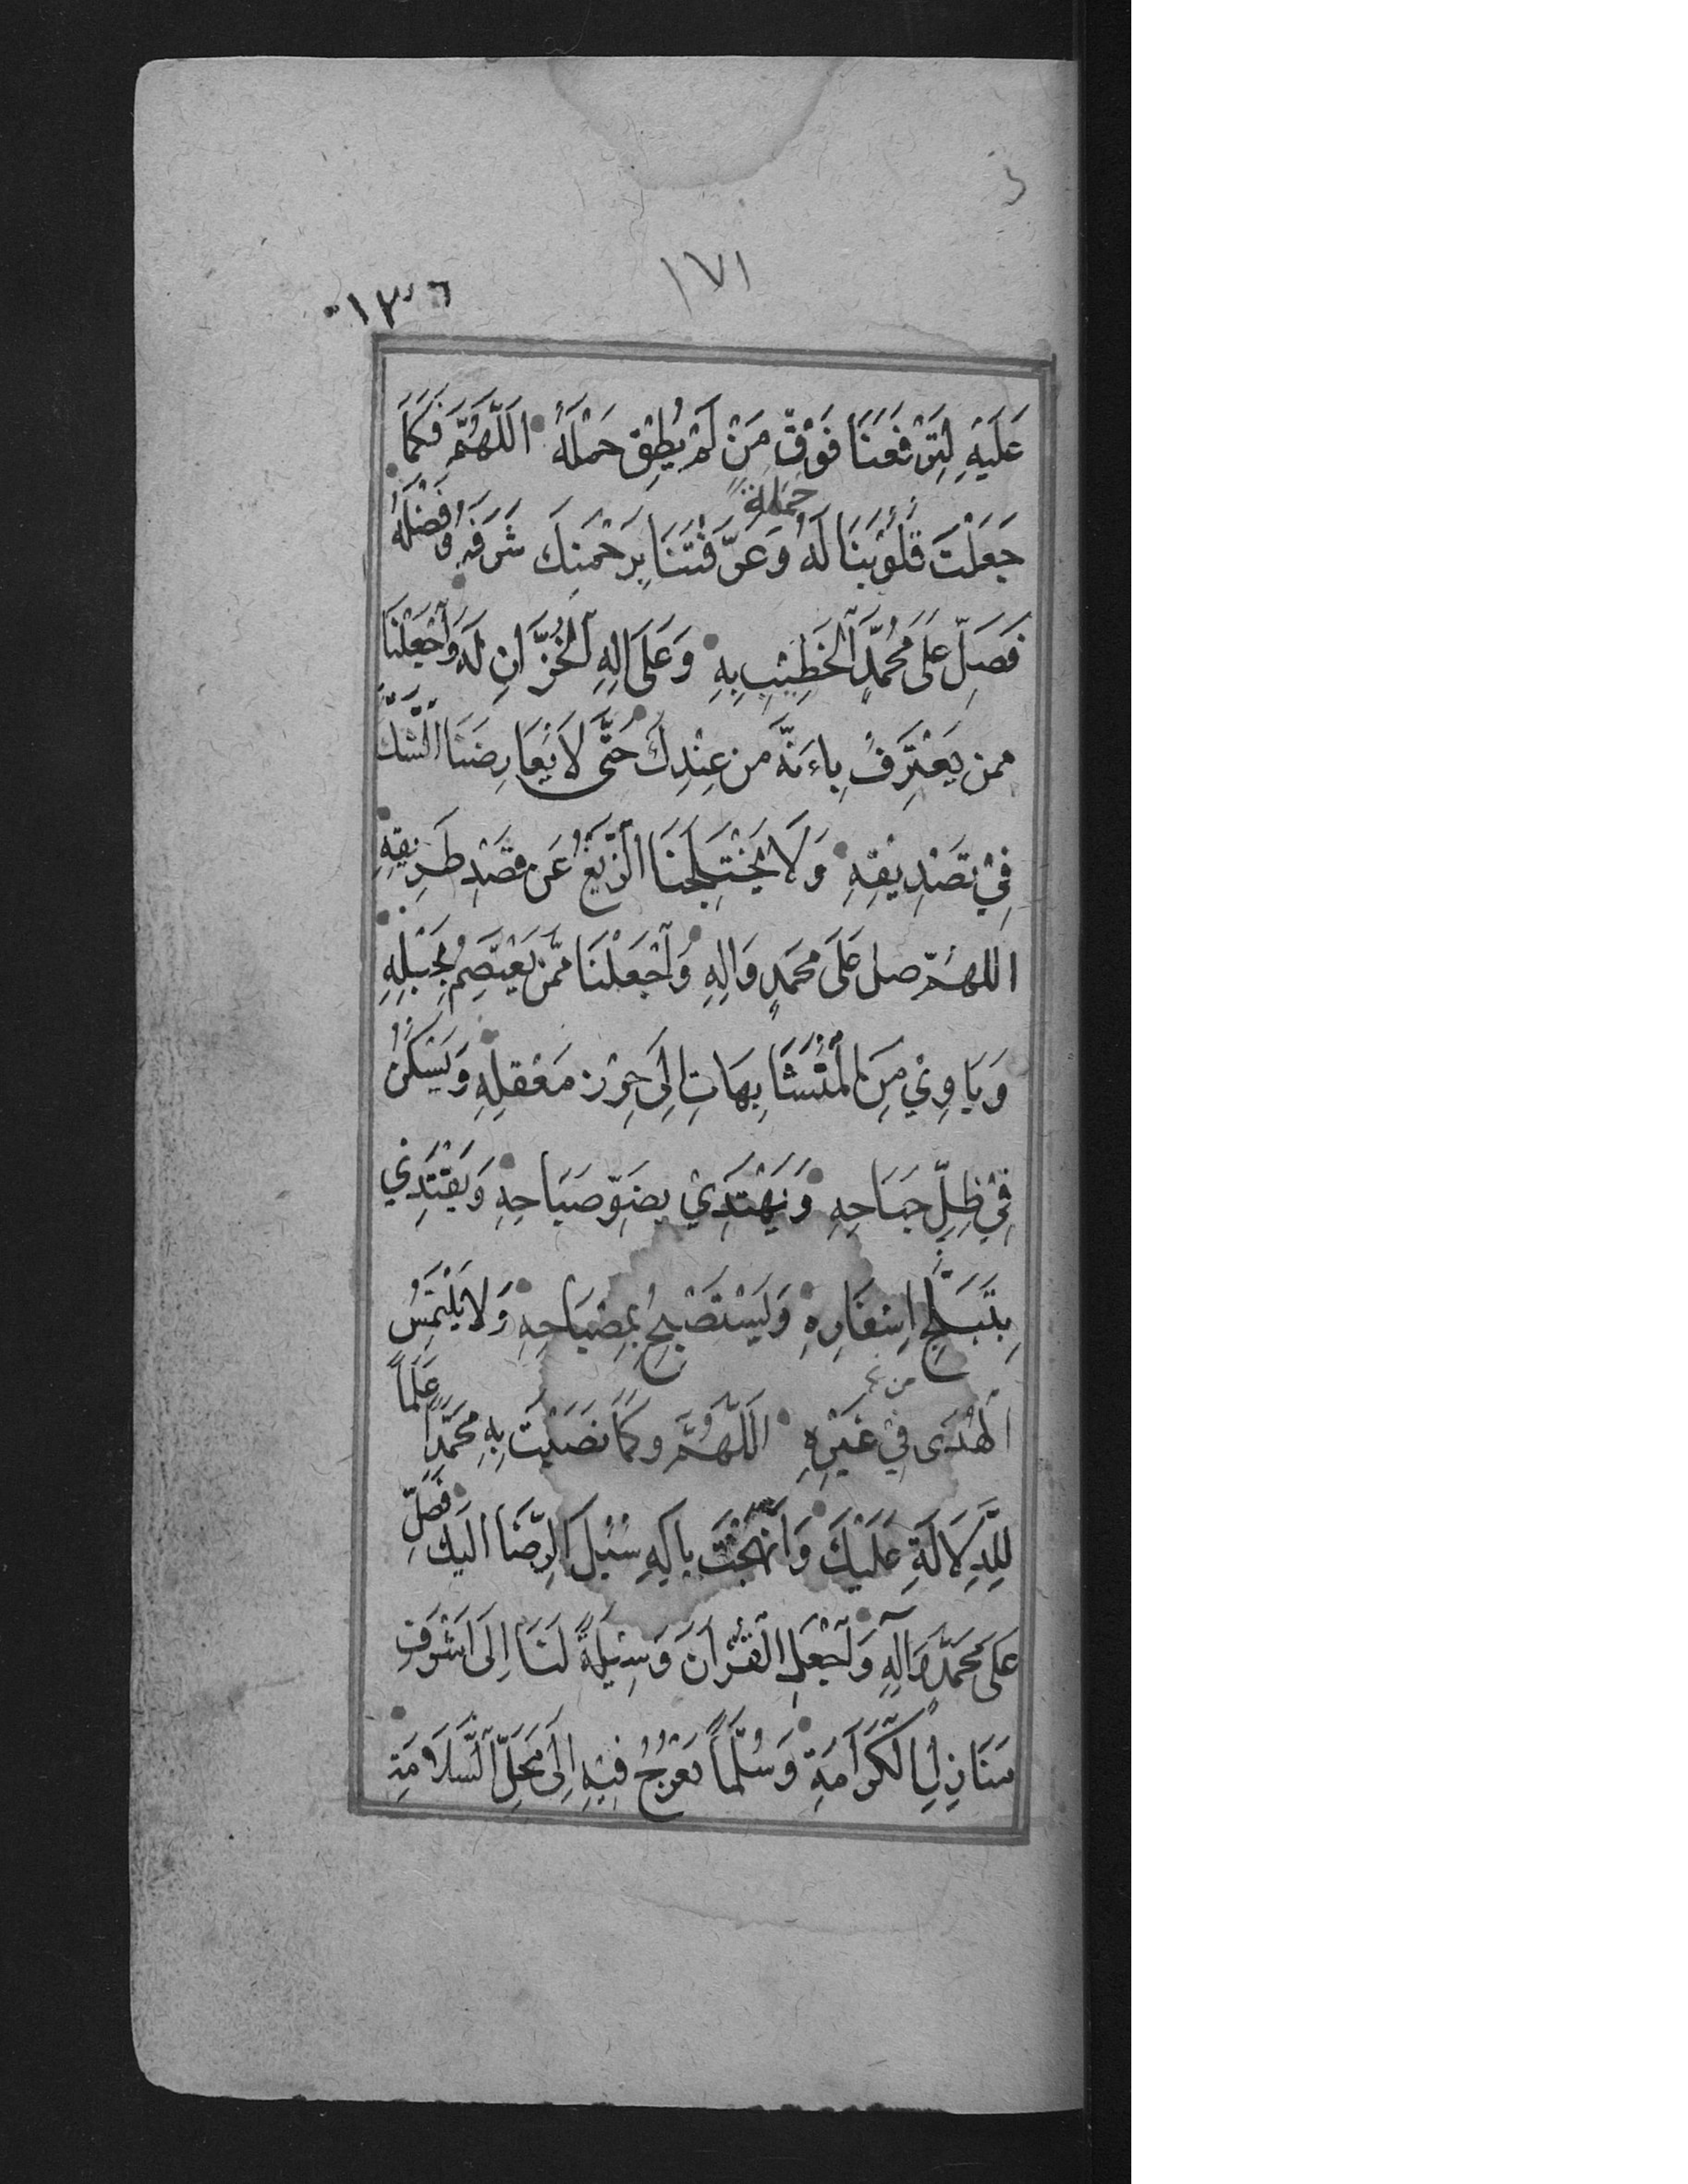 ١٧١
١٣٦
عَلَيْهِ لِتَرْفَعَنَا فَوْقَ مَنْ لَمْ يُطِقْ حَمْلَهُ اَللَّهُمَّ فَكَمَا
جَعَلْتَ قُلُوبَنَا لَهُ حَمَلَةً وَعَرَّفْتَنَا بِرَحْمَتِكَ شَرَفَهُ وَفَضْلَهُ
فَصَلِّ عَلَى مُحَمَّدٍ الْخَطِيْبِ بِهِ وَعَلَى الِهِ الْخُزَّانِ لَهُ وَاجْعَلْنَا
ممن يَعْتَرِفُ بِاَنَّهُ من عِنْدِكَ حَتَّى لَا يُعَارِضَنَا الشَّكُّ
فِيْ تَصْدِيْقِهِ وَلَا يَخْتَلِجَنَا الزَّيْغُ عَن قَصْدِ طَرِيقِهِ
اللهم صل عَلَى محمَدٍ وَالِهِ وَاجْعَلْنَا ممَّن يَعْتَصِمُ بِحَبْلِهِ
وَيَاوِيْ مِنَ الْمُتَشَابِهَاتِ اِلَى حِرْزِ مَعْقِلِهِ وَيَسْكُنُ
فِيْ ظِلِّ جَنَاحِهِ وَيَهْتَدِيْ بِضَوْءِ صَبَاحِهِ وَيَقْتَدِيْ
بِتَبَلُّجِ اِسْفَارِهِ وَيَسْتَصْبِحُ بِمِصْبَاحِهِ وَلَا يَلْتَمِسُ
الْهُدَى فِيْ غَيْرِهِ اَللَّهُمَّ وَكَمَا نَصَبْتَ بِهِ مُحَمَّدًا عَلَمًا
لِلدِّلَالَةِ عَلَيْكَ وَاَنْهَجْتَ بِالِهِ سُبُلَ الرِّضَا اِلَيْكَ فَصَلِّ
عَلَى مُحَمَّدٍ وَآلِهِ وَاجْعَلِ الْقُرْآنَ وَسِيْلَةً لَنَا اِلَى اَشْرَفِ
مَنَازِلِ الْكَرَامَةِ وَسُلَّمًا نَعْرُجُ فِيْهِ اِلَى مَحَلِّ السَّلَامَةِ